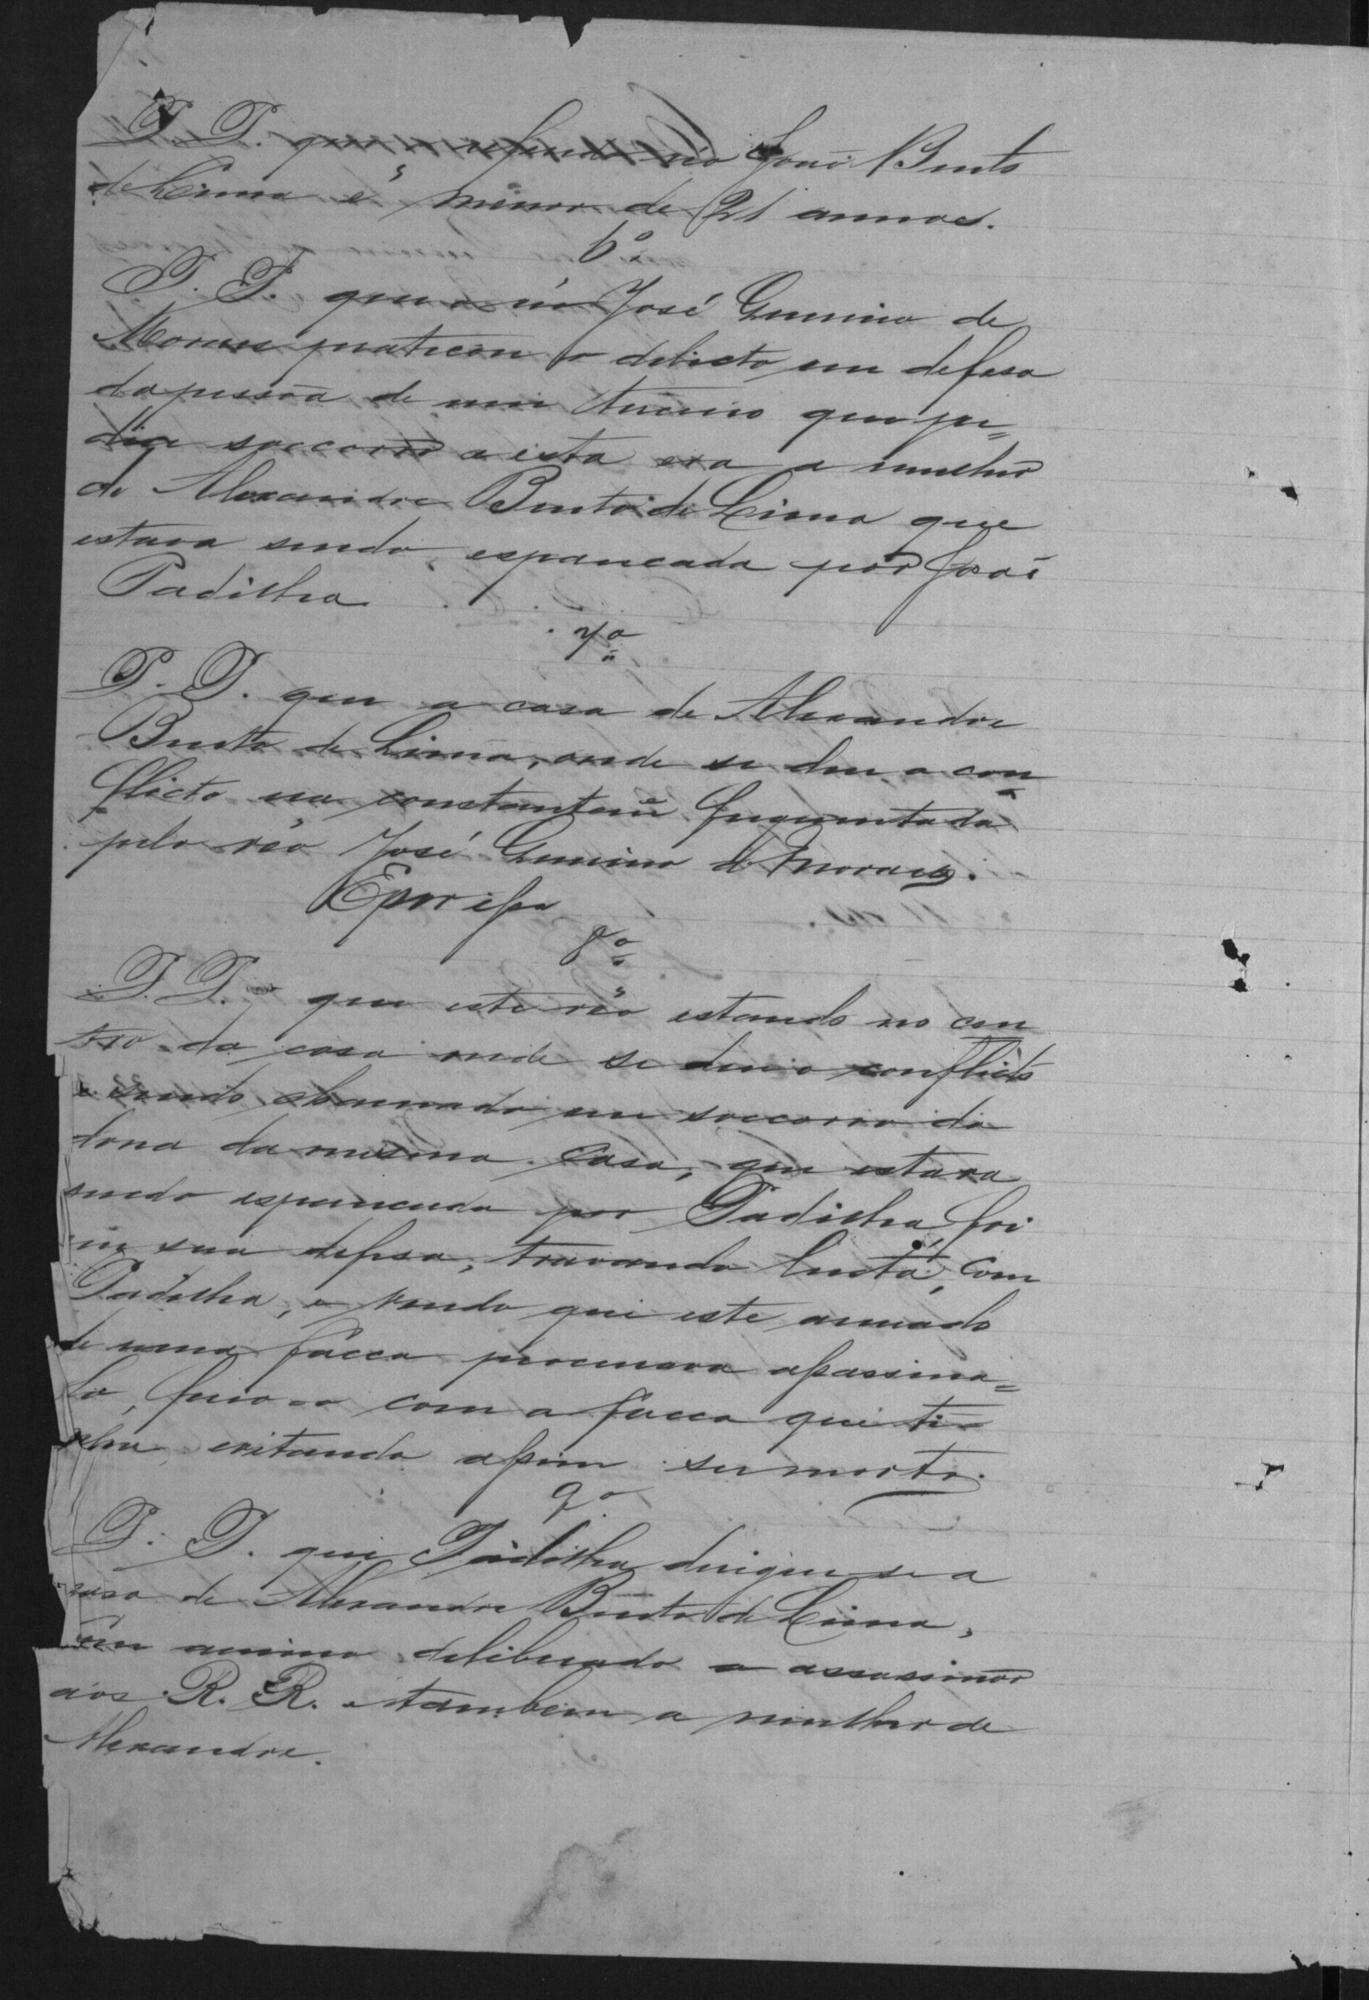 P. P. que réo João Bento
de Lima é menor de 21 annos.
6º
P. P. que o réo José Gumino de
Moraes praticou o delicto em defesa
da pessôa de um terceiro que pe=
dia soccorro e esta era a mulher
de Alexandre Bento de Lima que
estava sendo espancada por José
Padilha
7º
P. P. que a casa de Alexandre
Bento de Lima, onde se deu o con
flicto era constantemᵉ frequentada
pelo réo José Gumino de Moraes.
E por isso
8º
P. P. que este réo estando no cen
tro da casa onde se deu o conflicto
e sendo chamado em soccorro da
dona da mesma casa, que estava
sendo espancada por Padilha, foi
em sua defesa, travando lucta, com
Padilha, e vendo que este armado
de uma facca procurava assassina=
lo, ferio-o com a facca que ti-
nha, evitando assim ser morto.
9º
P. P. que Padilha dirigiu se a
casa de Alexandre Bento de Lima,
em animo deliberado a assassinar
aos R. R. e tambem a mulher de
Alexandre.